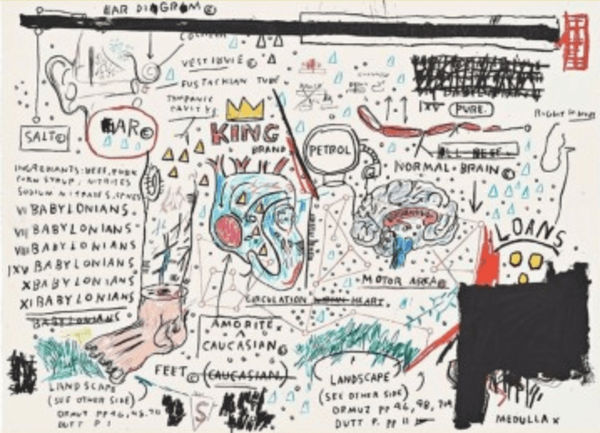 EAR DIAGRAM©
VESTIBULE ©
EUSTACHIAN TUBE
TYMPANIC
CAVITY
SALT©
EAR©
KING
BRAND
PETROL
PURE.
ALL BEEF.
NORMAL BRAIN©
LOANS
INGREDIANTS: BEEF, PORK
CORN SYRUP, NITRITES
VI BABYLONIANS.
VII BABYLONIANS.
VIII BABYLONIANS
IXV BABYLONIANS
X BABYLONIANS
XI BABYLONIANS
BABYLONIANS
MOTOR AREA©
CIRCULATION HEART.
AMORITE
CAUCASIAN©
FEET© (CAUCASIAN.)
LANDSCAPE
(SEE OTHER SIDE)
DUTT P. 1
S
LANDSCAPE
(SEE OTHER SIDE)
ORMUZ PP 96, 98,
DUTT P. PP 11
MEDULLA X